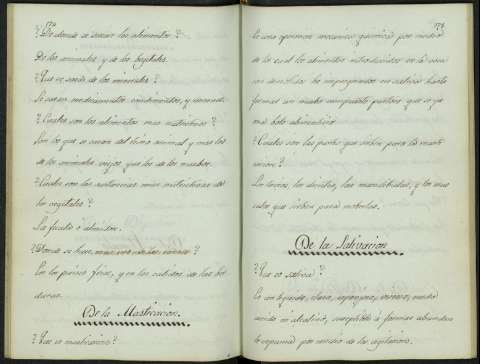 178
¿De donde se sacan los alimentos?
De los animales y de los begetales.
¿Que se saca de los minerales?
Se sacan medicamentos condimentos, y venenos.
¿Cuales son los alimentos mas nutritivos?
Son los que se sacan del reino animal y mas los
de los animales viejos que los de los nuebos.
¿Cuales son las sustancias mas nutritivas de
los vegetales?
La fecula ó almidon.
¿Donde se hace
En los paises frios, y en los cálidos de las ber
duras.
De la Masticacion.
¿Que es masticacion?
179
Es una operacion mecanico quimica por medio
de la cual los alimentos introducidos en la boca
son desechos é impregnados en saliva hasta
formar un masa comparable pastosa que se ya
ma bolo alimenticio
¿Cuales son las partes que sirben para la masti
cacion?
Los labios, los dientes, las mandibulas, y los mus
culos que sirben para moverlas.
De la Salivacion
¿Que es saliva?
Es un liquido, claro, espumoso, viscoso,
acido ni alcalino, susceptible á formar abundan
te espuma por medio de la agitacion.